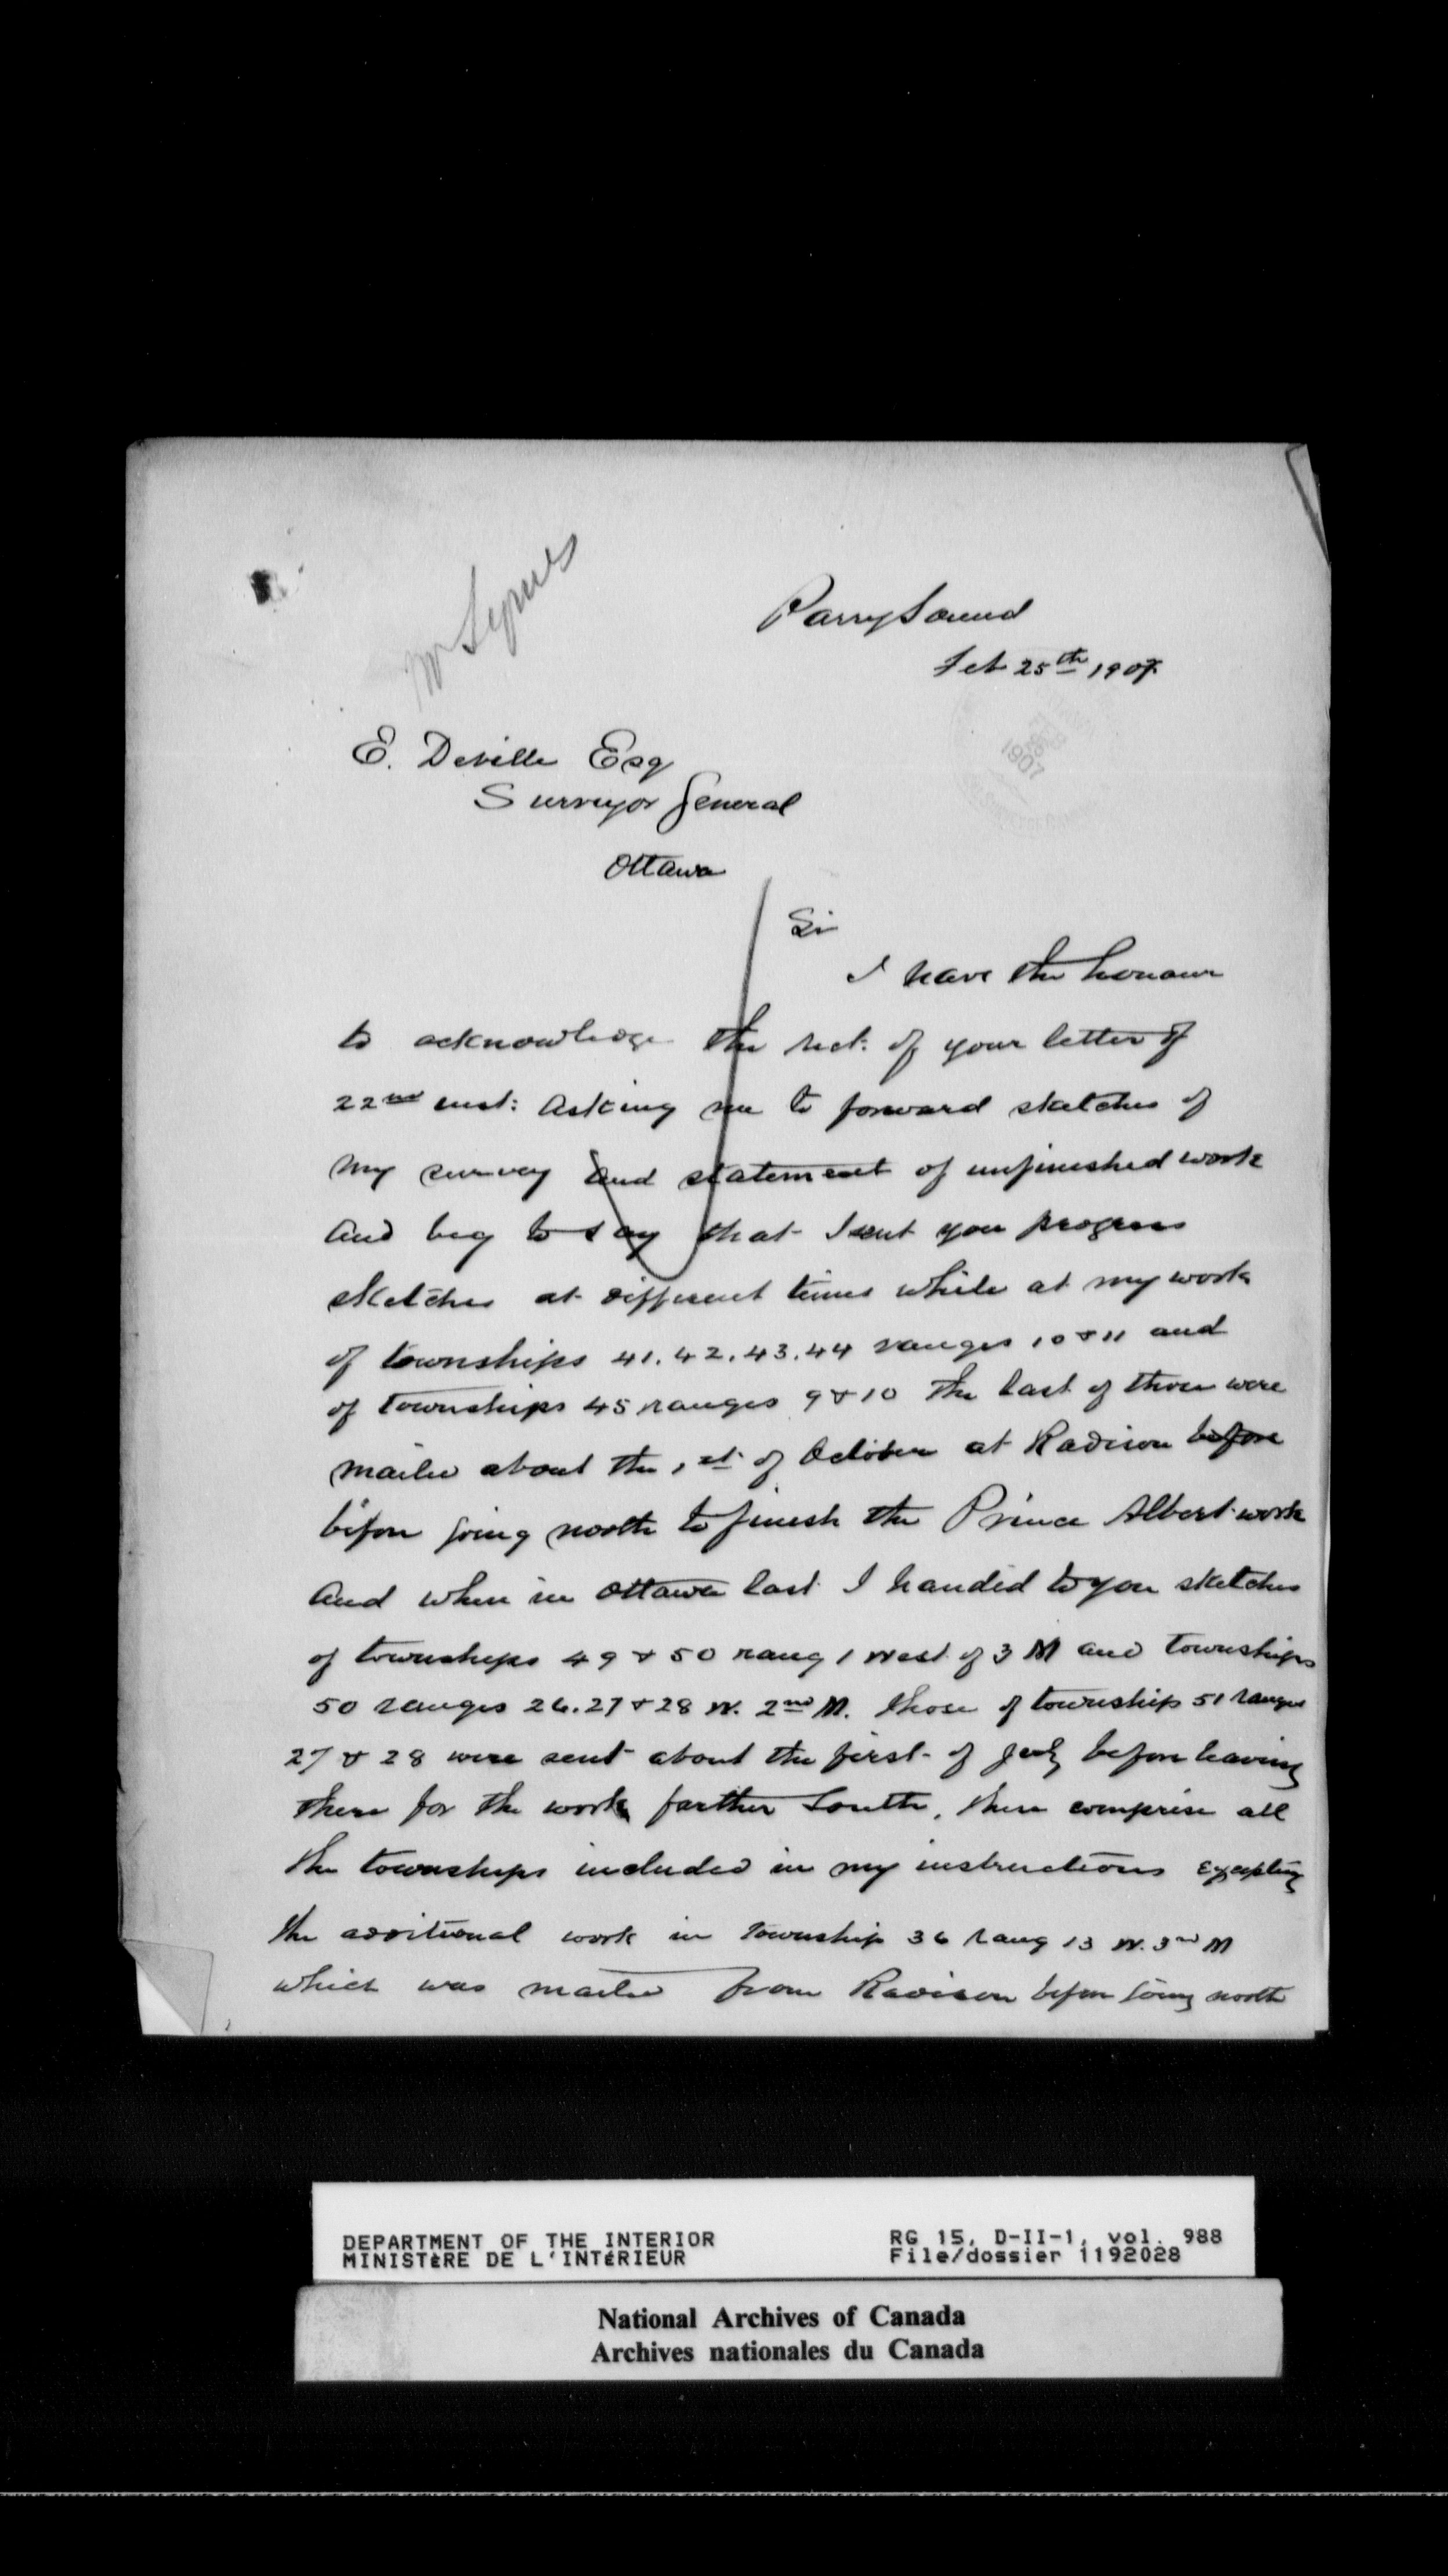 Parry Sound
Feb 25th 1907
E. Deville Esq
Surveyor General
Ottawa
Sir
I have the honour
to acknowledge the rect. of your letter of
22nd inst: asking me to forward sketches of
my survey and statement of unfinished work
and beg to say that I sent you progress
sketches at different times while at my work
of townships 41.42.43.44 ranges 10 & 11 and
of townships 45 ranges 9 & 10 The last of these were
mailed about the 1st of October at Radison before
before going north to finish the Prince Albert work
and when in Ottawa last I handed to you sketches
of townships 49 & 50 rang 1 West of 3 M and townships
50 ranges 26.27 & 28 W. 2nd M. those of township 51 ranges
27 & 28 were sent about the first of July before leaving
there for the work farther South, these comprise all
the townships included in my instructions excepting
the additional work in township 36 rang 13 W. 3rd M
which was mailed from Radison before going north
DEPARTMENT OF THE INTERIOR
MINISTÈRE DE L'INTÉRIEUR
RG 15, D-II-1, vol. 988
File/dossier 1192028
National Archives of Canada
Archives nationales du Canada